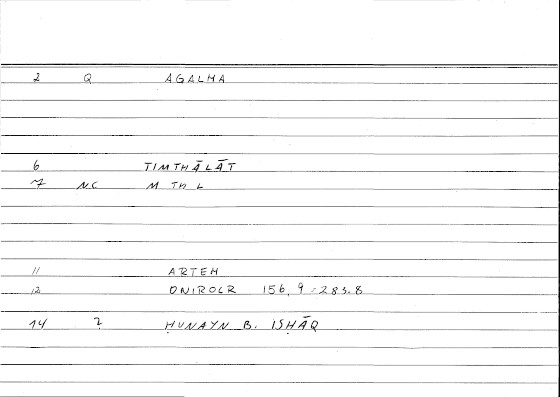 2 Q AGALMA
6 TIMTHĀLĀT
7 NC M TH L
11 ARTEM
12 ONIROCR 156, 9 = 283.8
14 2 ḤUNAYN B. ISḤĀQ